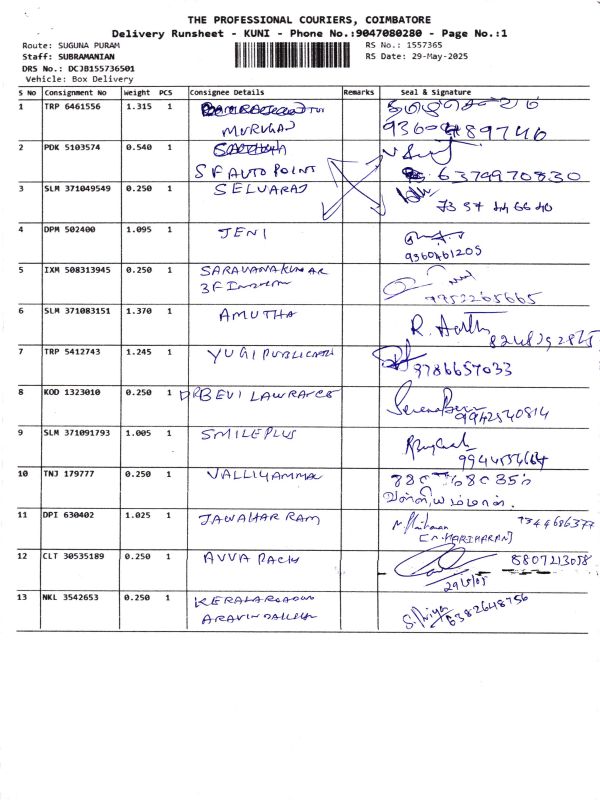 THE PROFESSIONAL COURIERS, COIMBATORE
Delivery Runsheet - KUNI - Phone No.:9047080280 - Page No.:1
Route: SUGUNA PURAM RS No.: 1557365
Staff: SUBRAMANIAN RS Date: 29-May-2025
DRS No.: DCJB155736501
Vehicle: Box Delivery
S No Consignment No Weight PCS Consignee Details Remarks Seal & Signature
1 TRP 6461556 1.315 1
MURUGAN
2 PDK 5103574 0.540 1
SF AUTO POINT 6374970830
3 SLM 371049549 0.250 1 SELVARAJ
4 DPM 502400 1.095 1 JENI
9360461205
5 IXM 508313945 0.250 1 SARAVANAKUMAR
6 SLM 371083151 1.370 1 AMUTHA
7 TRP 5412743 1.245 1 YUGI PUBLICATION
9786657033
8 KOD 1323010 0.250 1 DR BEVI LAWRANCE
9942540814
9 SLM 371091793 1.005 1 SMILE PLUS
10 TNJ 179777 0.250 1 VALLIYAMMAL
வள்ளியம்மாள்.
11 DPI 630402 1.025 1 JAWAHAR RAM 7344686377
12 CLT 30535189 0.250 1 AVVA PACK 8807213058
29/5/05
13 NKL 3542653 0.250 1
S. Priya 6382648756